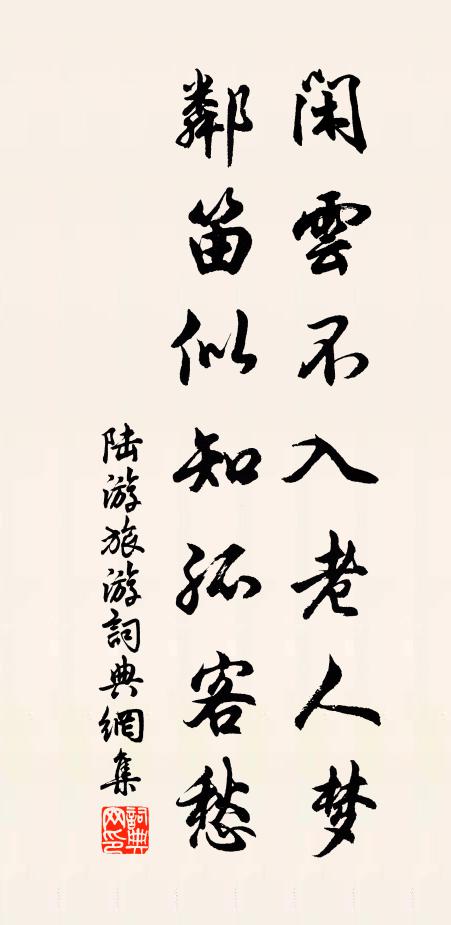 閑雲不入老人梦
鄰笛似知孤客愁
陆游旅游詞典網集
詞典網印